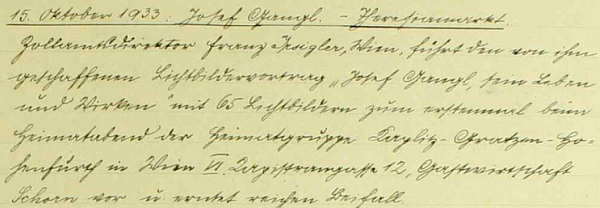 15. Oktober 1933: Josef Gangl. - Theresiamarkt.
Zollamtsdirektor Franz Traigler, Wien, führt den von ihm
geschaffenen Lichtbildervortrag „Josef Gangl, sein Leben
und Wirken" mit 65 Lichtbildern zum erstenmal beim
Heimatabend der Heimatgruppe Kaplitz-Gratzen-Ho-
henfurth in Wien VI. Kapistrangasse 12, Gastwirtschaft
Schorn vor u. erntet reichen Beifall.